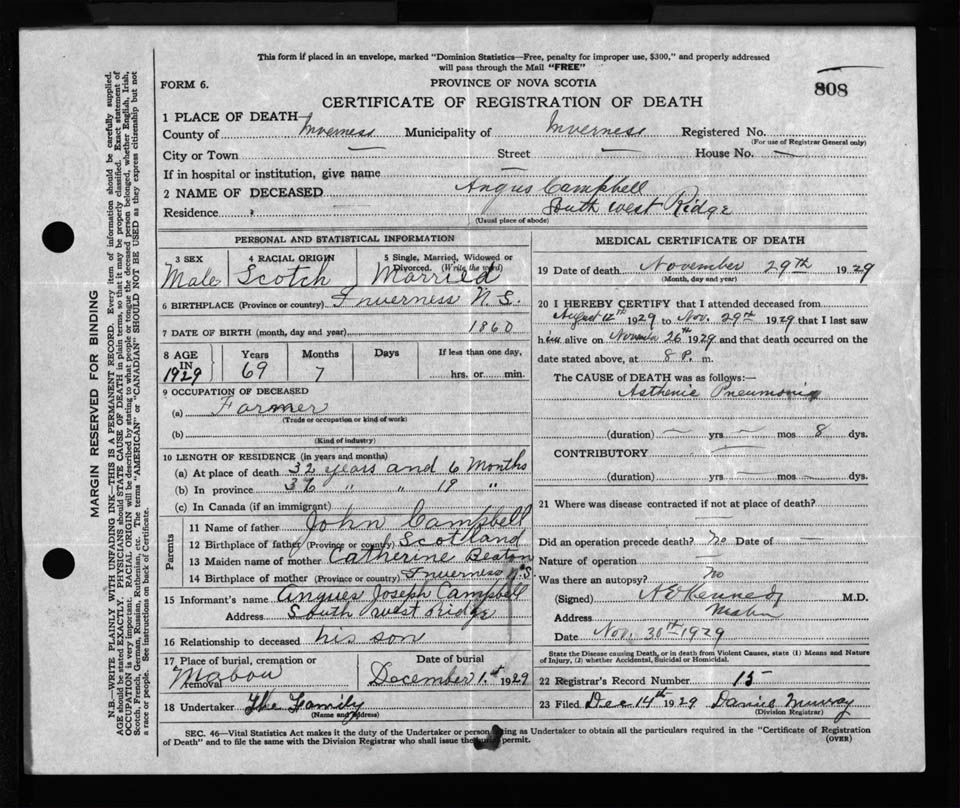 This form if placed in an envelope, marked "Dominion Statistics—Free, penalty for improper use, $300," and properly addressed
will pass through the Mail "FREE"
FORM 6.
PROVINCE OF NOVA SCOTIA
808
CERTIFICATE OF REGISTRATION OF DEATH
1 PLACE OF DEATH
County of Inverness Municipality of Inverness Registered No.
(For use of Registrar General only)
City or Town — Street — House No. —
If in hospital or institution, give name —
2 NAME OF DECEASED Angus Campbell
Residence South West Ridge
(Usual place of abode)
PERSONAL AND STATISTICAL INFORMATION
3 SEX 4 RACIAL ORIGIN 5 Single, Married, Widowed or
Divorced. (Write the word)
Male Scotch Married
6 BIRTHPLACE (Province or country) Inverness N.S.
7 DATE OF BIRTH (month, day and year) 1860
8 AGE Years Months Days If less than one day,
IN
1929 69 7 hrs. or min.
9 OCCUPATION OF DECEASED
(a) Farmer
(Trade or occupation or kind of work)
(b)
(Kind of industry)
10 LENGTH OF RESIDENCE (in years and months)
(a) At place of death 32 years and 6 Months
(b) In province 36 " " 19 "
(c) In Canada (if an immigrant)
Parents
11 Name of father John Campbell
12 Birthplace of father (Province or county) Scotland
13 Maiden name of mother Catherine Beaton
14 Birthplace of mother (Province or country) Inverness N.S
15 Informant's name Angus Joseph Campbell
Address South West Ridge
16 Relationship to deceased his son
17 Place of burial, cremation or
removal Mabou
Date of burial
December 1st 1929
18 Undertaker The Family
(Name and address)
MEDICAL CERTIFICATE OF DEATH
19 Date of death November 29th 1929
(Month, day and year)
20 I HEREBY CERTIFY that I attended deceased from
August 12th 1929 to Nov. 29th 1929 that I last saw
him alive on November 26th 1929 and that death occurred on the
date stated above, at 8 P. m.
The CAUSE OF DEATH was as follows:—
Asthenic Pneumonia
(duration) — yrs — mos 8 dys.
CONTRIBUTORY —
(duration) — yrs — mos — dys.
21 Where was disease contracted if not at place of death? —
Did an operation precede death? No Date of —
Nature of operation —
Was there an autopsy? No
(Signed) Kennedy M.D.
Address Mabou
Date Nov. 30th 1929
State the Disease causing Death, or in death from Violent Causes, state (1) Means and Nature
of Injury, (2) whether Accidental, Suicidal or Homicidal.
22 Registrar's Record Number 15
23 Filed Dec 14th 1929 Daniel Murray
(Division Registrar)
SEC. 46—Vital Statistics Act makes it the duty of the Undertaker or person acting as Undertaker to obtain all the particulars required in the "Certificate of Registration
of Death" and to file the same with the Division Registrar who shall issue the burial permit.
(OVER)
MARGIN RESERVED FOR BINDING
N.B.—WRITE PLAINLY WITH UNFADING INK—THIS IS A PERMANENT RECORD. Every item of information should be carefully supplied.
AGE should be stated EXACTLY. PHYSICIANS should STATE CAUSE OF DEATH in plain terms, so that it may be properly classified. Exact statement of
OCCUPATION is very important. RACIAL ORIGIN will be described by stating to what people or tongue the deceased person belonged, whether English, Irish,
Scotch, French, German, Russian, Ruthenian, etc. The terms "AMERICAN" or "CANADIAN" SHOULD NOT BE USED as they express citizenship but not
a race or people. See instructions on back of Certificate.